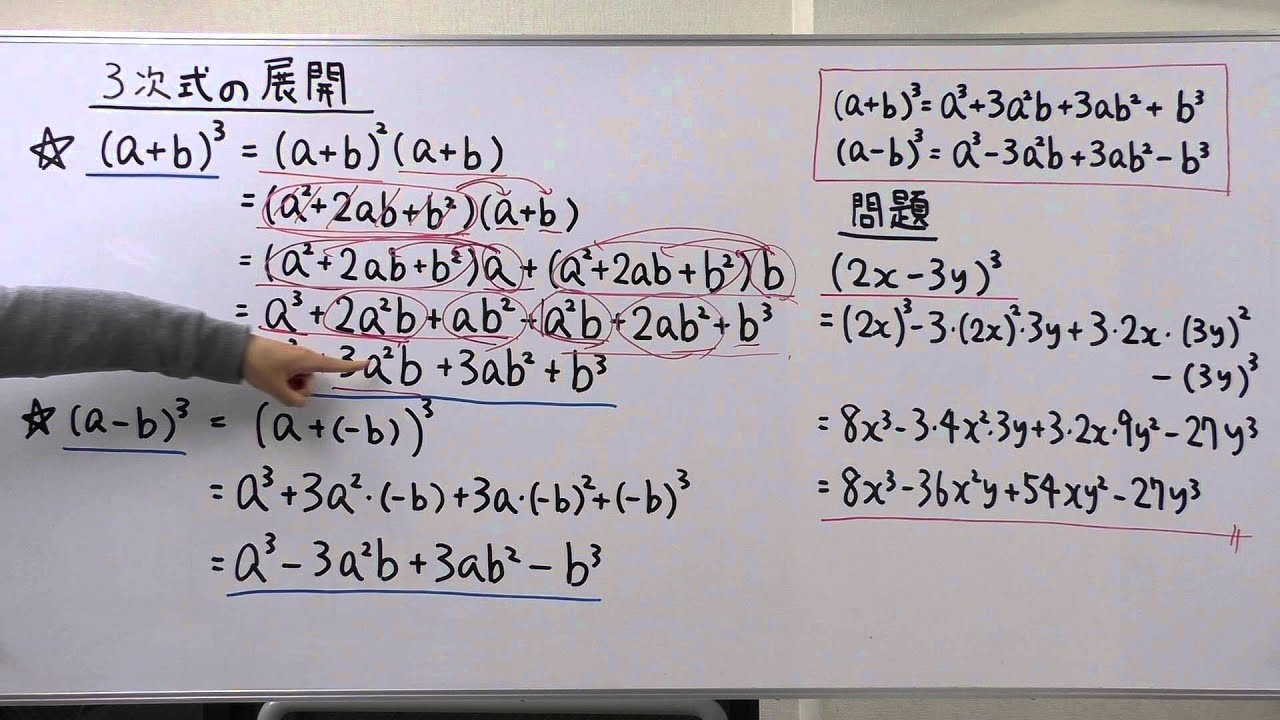 3次式の展開
☆ (a+b)³ = (a+b)²(a+b)
= (a²+2ab+b²)(a+b)
= (a²+2ab+b²)a+(a²+2ab+b²)b
= a³+2a²b+ab²+a²b+2ab²+b³
3a²b+3ab²+b³
☆ (a-b)³ = (a+(-b))³
= a³+3a²・(-b)+3a・(-b)²+(-b)³
= a³-3a²b+3ab²-b³
(a+b)³= a³+3a²b+3ab²+b³
(a-b)³= a³-3a²b+3ab²-b³
問題
(2x-3y)³
= (2x)³-3・(2x)²・3y+3・2x・(3y)²
-(3y)³
= 8x³-3・4x²・3y+3・2x・9y²-27y³
= 8x³-36x²y+54xy²-27y³